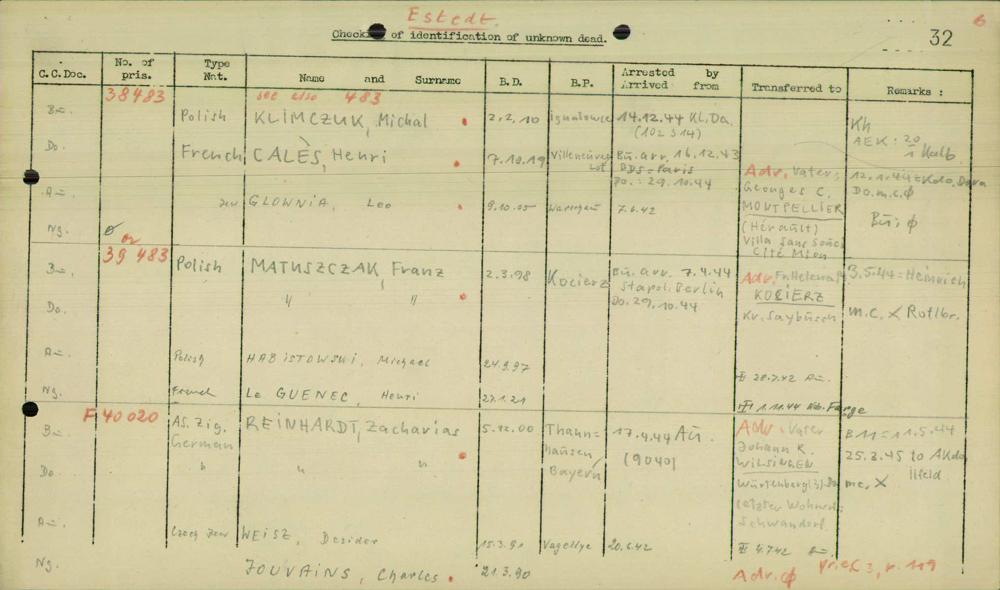 Estedt.
6
Check of identification of unknown dead.
32
C.C.Doc. No. of pris. Type Nat. Name and Surname B.D. B.P. Arrested by Arrived from Transferred to Remarks :
38483 see also 483
Bu. Polish KLIMCZUK, Michal 2.2.10 14.12.44 Kl. Da. Kh
(102 314) AEK: 20
1 Kalb.
Do. French CALÈS, Henri 7.10.19 Villeneuve Lot Bu. arr. 16.12.43
BDS-Paris
Do.: 29.10.44
Adr. Vater: 12.1.44 = Kdo. Dora
Georges C. Do. m.c. φ
Au. Jew GLOWNIA, Leo 9.10.05 7.6.42 MONTPELLIER Bu: φ
(Hérault)
Ng. Villa Sans Souci
Cité Mion
or
39 483
Bu. Polish MATUSZCZAK, Franz 2.3.98 Kocierz Bu. arr. 7.4.44 Adr. Fr. Helena M. 3.5.44 = Heinrich
Stapol. Berlin KOCIERZ
Do. " " Do. 29.10.44 Kr. Saybusch m.c. X Rotlbr.
Au. Polish HABISTOWSKI, Michael 24.9.97 28.7.42 Au.
Ng. French Le GUENEC, Henri 27.1.21 III 1.11.44 Kdo. Farge
F 40020
Bu. As. Zig. REINHARDT, Zacharias 5.12.00 Thann= 17.4.44 Au. Adr. Vater B 11 = 11.5.44
German hausen (9040) Johann R. 25.3.45 to AKdo
Do. " " Bayern WILSINGEN Ilfeld
Württenberg m.c. X
letzter Wohnort:
Schwandorf
Au. Czech Jew WEISZ, Dezider 15.3.91 Vagellye 20.6.42 4.7.42 Au.
Ng. JOUVAINS, Charles 21.3.90 Adr. φ